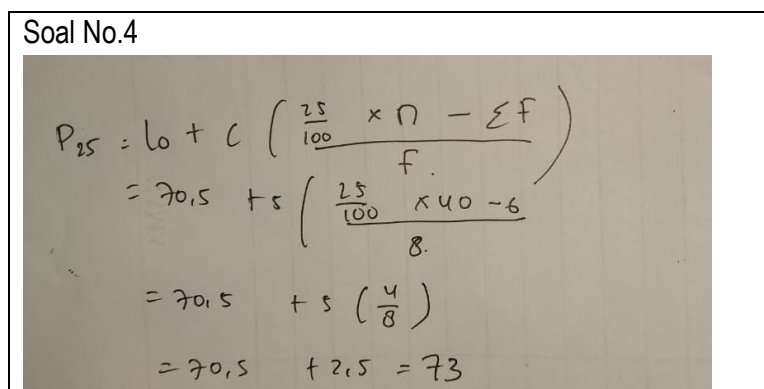 Soal No.4
P25 = lo + c ( 25/100 × n − Σf / f. )
= 70,5 + 5 ( 25/100 × 40 − 6 / 8.
= 70,5 + 5 ( 4/8 )
= 70,5 + 2,5 = 73